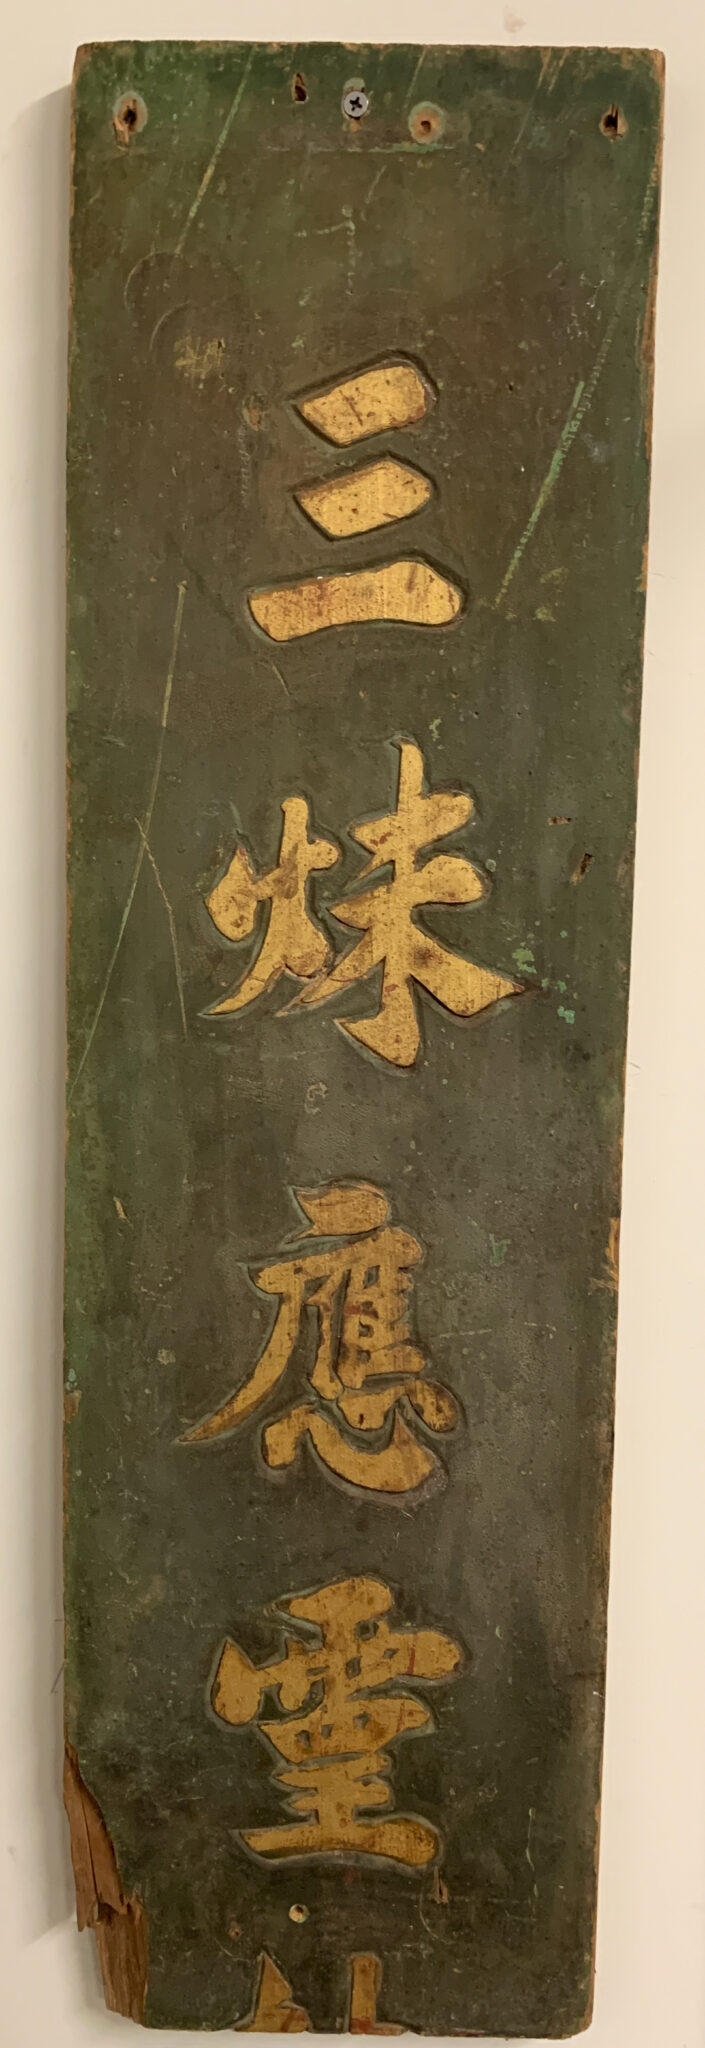 三
妹
應
靈